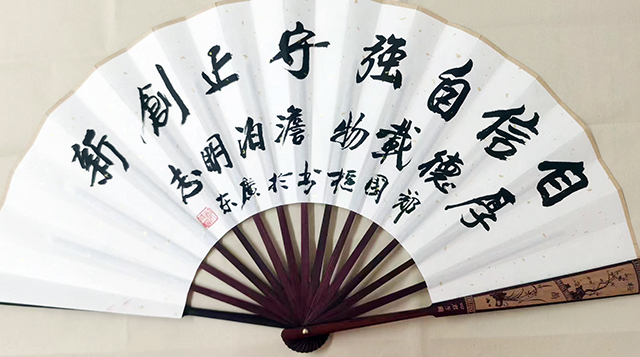 自信自强守正創新
厚德載物澹泊明志
国枢书於廣东